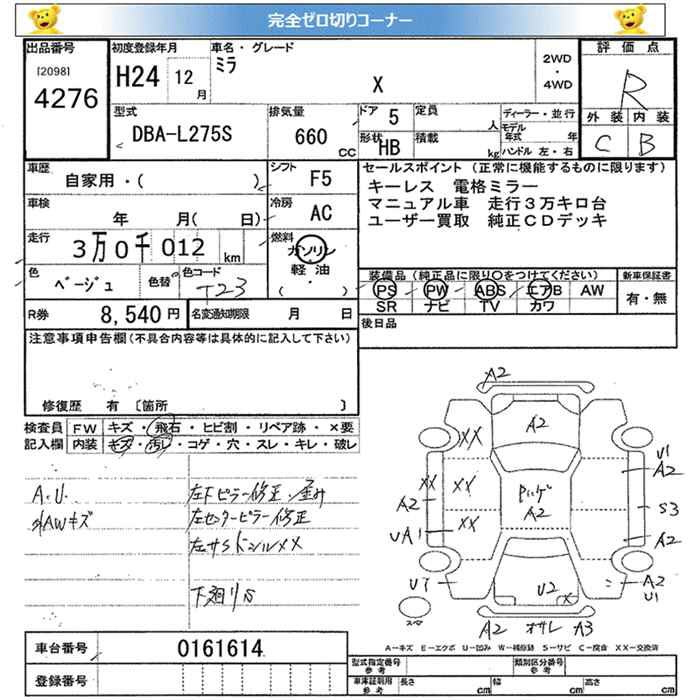 完全ゼロ切りコーナー
出品番号
[2098]
4276
初度登録年月
H24 12月
車名・グレード
ミラ
X
2WD
・
4WD
評価点
R
外装 内装
C B
型式
DBA-L275S
排気量
660 CC
ドア 5
形状 HB
定員 人
積載 kg
ディーラー・並行
モデル年式 年
ハンドル 左・右
車歴
自家用・( )
シフト
F5
車検
年 月( 日)
冷房
AC
走行
3万0千012 km
燃料
ガソリン
軽・油
・( )
色
ベージュ
色替
色コード
T23
セールスポイント (正常に機能するものに限ります)
キーレス 電格ミラー
マニュアル車 走行3万キロ台
ユーザー買取 純正CDデッキ
装備品 (純正品に限り○をつけてください)
PS PW ABS エアB AW
SR ナビ TV カワ
新車保証書
有・無
R券 8,540円
名変通知期限 月 日
後日品
注意事項申告欄 (不具合内容等は具体的に記入して下さい)
修復歴 有 〔箇所 〕
検査員記入欄
FW キズ・飛石・ヒビ割・リペア跡・×要
内装 キズ・汚レ・コゲ・穴・スレ・キレ・破レ
A.U.
左Fピラー修正・歪み
左センターピラー修正
A2
A2
XX
XX
XX
XX
A2
UA1
A2
U1
A2
S3
A2
U2
A2
U1
A2
A3
A-キズ E-エクボ U-凹み W-補修跡 S-サビ C-腐食 XX-交換済
車台番号
0161614
登録番号
型式指定番号
参考
類別区分番号
車庫証明用
参考
長さ cm
幅 cm
高さ cm